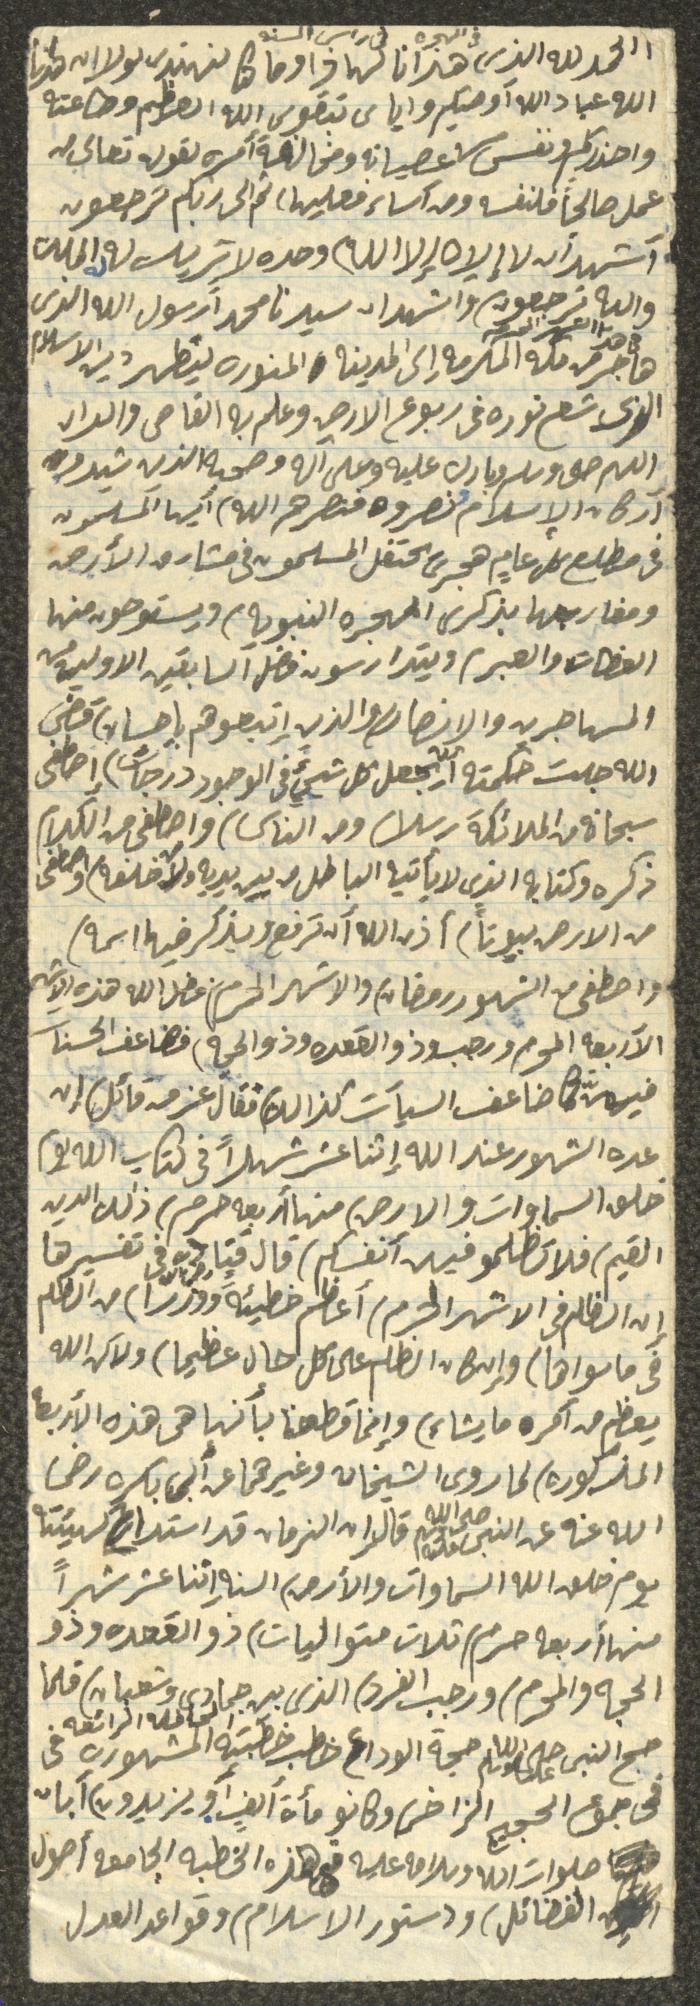 في الهجرة في راس السنه
الحمد لله الذي هدانا لهاذا وما كنا لنهتدي لولا ان هدانا
الله عباد الله أوصيكم واياي بتقوى الله العظيم وطاعته
واحذركم ونفسي عصيانه ومخالفة أمره لقوله تعالى من
عمل صالحاً فلنفسه ومن أساء فعليها) ثم الى ربكم ترجعون
أشهد ان لا إلاه إلا الله) وحده لا شريك له له الملك
واليه ترجعون) واشهد ان سيدنا محمد ارسول الله الذي
هاجر من مكة المكرمه إلى المدينة المنوره ليظهر دين الاسلام
الذي شع نوره في ربوع الارض وعلم به القاصي والدان
اللهم صلي وسلم وبارك عليه وعلى اله وصحبه الذين شيدوا
أركان الاسلام ونصروه فنصرهم الله) أيها المسلمون
في مطلع كل عام هجري يحتفل المسلمون في مشارق الأرض
ومغاربها بذكرى الهجره النبويه) ويستوحون منها
العظات والعبر) ويتدارسون فضل السابقين الاولين من
المهاجرين والانصار والذين إتبعوهم بإحسان) قضى
الله جلت حكمته أن يجعل كل شيئ في الوجود درجات) إصطفى
سبحانه من الملائكة رسلا) ومن الناس) واصطفى من الكلام
ذكره وكتابه الذي لا يأتيه الباطل من بين يديه ولا من خلفه) واصطفى
من الارض بيوتاً) أذن الله أن ترفع ويذكر فيها اسمه)
واصطفى من الشهور رمضان) والاشهر الحرم) فضل الله هذه الاشهر
الأربعه المحرم ورجب وذو القعده وذو الحجه) فضاعف الحسنات
فيهن كما ضاعف السيآت كذالك) فقال عز من قائل) إن
عدة الشهور عند الله إثنا عشر شهراً في كتاب الله يوم
خلق السماوات والارض) منها أربعه حرم) ذلك الدين
القيم) فلا تظلمو فيهن أنفسكم) قال قتاده في تفسيرها
إن الظلم في الاشهر الحرم) أعظم خطيئة ووزرا) من الظلم
في ما سواها) وإن كان الظلم على كل حال عظيما) ولاكن الله
يعظم من أمره ما يشاء) وإنما قطعنا بأنها هي هذه الأربعه
المذكوره) لما روى الشيخان وغيرهما عن أبي بكره رضي
الله عنه عن النبي صلى الله عليه وسلم قال إن الزمان قد استدار كهيئته
يوم خلق الله السماوات والأرض) السنه إثنا عشر شهراً
منها أربعه حرم) ثلاث متواليات) ذو القعده وذو
الحجه والمحرم) ورجب الفرد) الذي بين جمادى وشعبان) فلما
حج النبي صلى الله عليه وسلم حجة الوداع خطب خطبته المشهوره الرائعه في
في جموع الحجيج الزاخر) وكانو مأة ألف أو يزيدون) أبان
صلوات الله وسلامه عليه في هذه الخطبه الجامعه أصول
الفضائل) ودستور الاسلام) وقواعد العدل